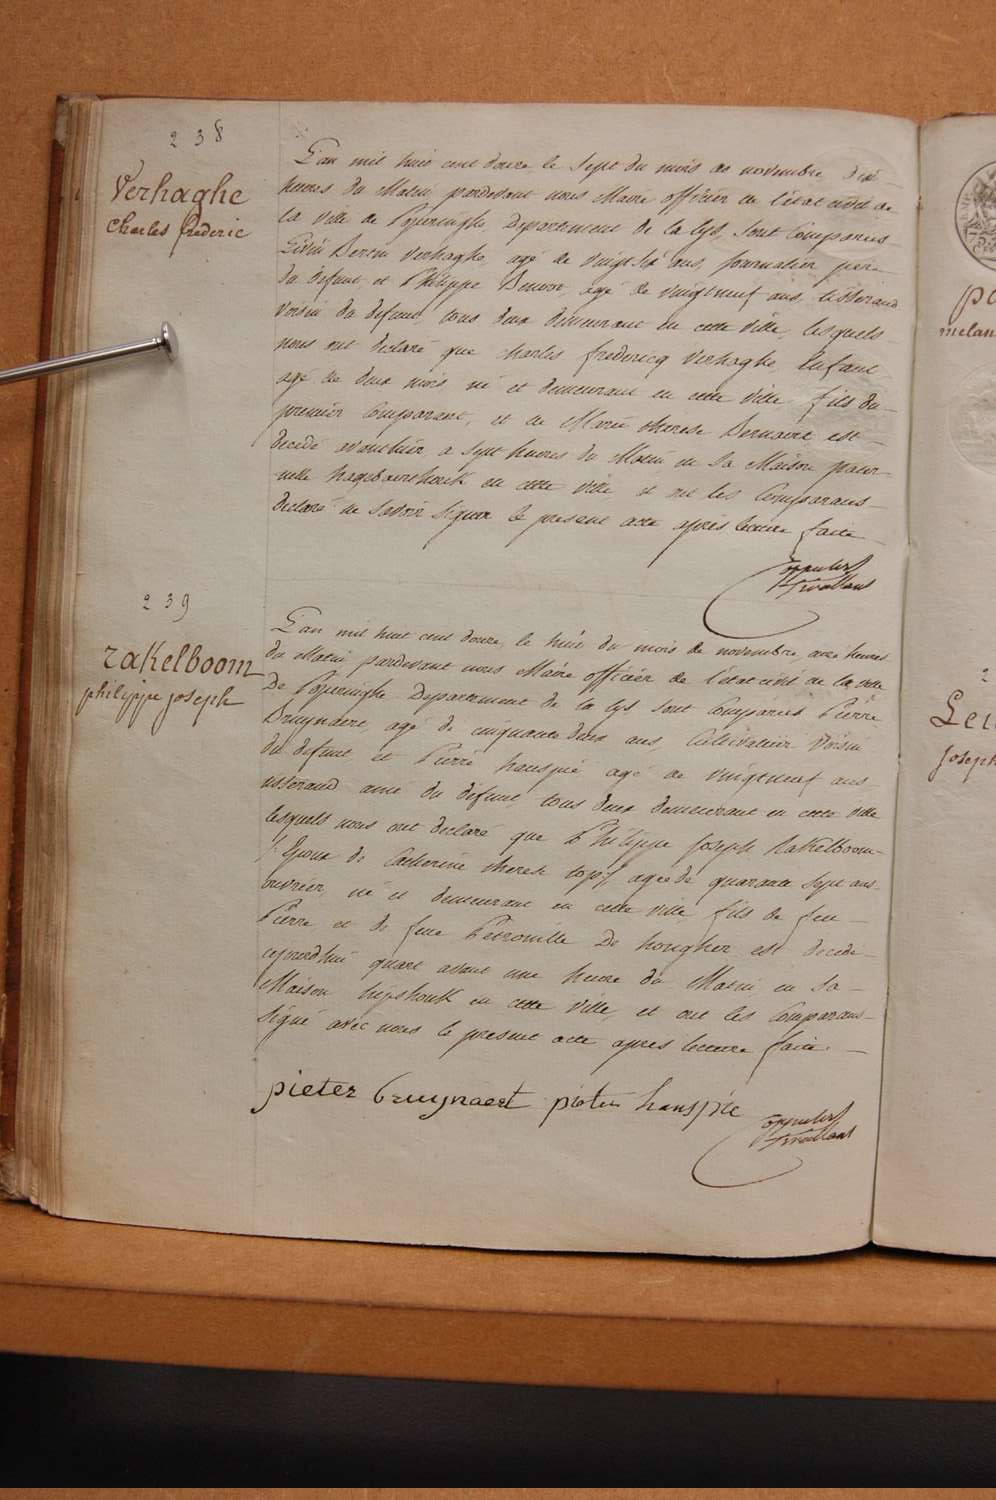 238
Verhaghe
Charles frederic
L'an mil huit cent douze, le Sept du mois de novembre dix
heures du Matin pardevant nous Maire officier de l'état civil de
la ville de Poperinghe Departement de la lys, sont Comparus
Livin Bertin Verhaghe, agé de vingt six ans, journalier pere
du defunt, et Philippe agé de vingtneuf ans tisserand
voisin du defunt, tous deux demeurant en cette ville, lesquels
nous ont declaré que charles fredericq Verhaghe, Enfant
agé de deux mois né et demeurant en cette ville, fils du
premier Comparant, et de Marie therese est
decedé avanthier a sept heures du Matin en Sa Maison
en cette ville et ont les Comparans
declaré ne Savoir Signer le present acte après lecture faite
239
rakelboom
philippe joseph
L'an mil huit cent douze, le huit du mois de novembre, onze heures
du Matin, pardevant nous Maire officier de l'état civil de la ville
De Poperinghe Departement de la lys sont Comparus Pierre
Bruynaert, agé de cinquante deux ans, Cultivateur Voisin
du defunt et Pierre hanspié agé de vingtneuf ans
tisserand ami du défunt, tous deux demeurant en cette ville
lesquels nous ont declaré que Philippe Joseph Rakelboom
Epoux de Catherine therese agé de quarante Sept ans
ouvrier, né et demeurant en cette ville fils de feu
Pierre, et de feue Petronille De hougher est decedé
cejourdhui quart avant une heure du Matin en Sa
Maison en cette Ville, et ont les Comparans
Signé avec nous le present acte apres lecture faite
pieter bruynaert pieter hanspie
Lei
joseph
melan